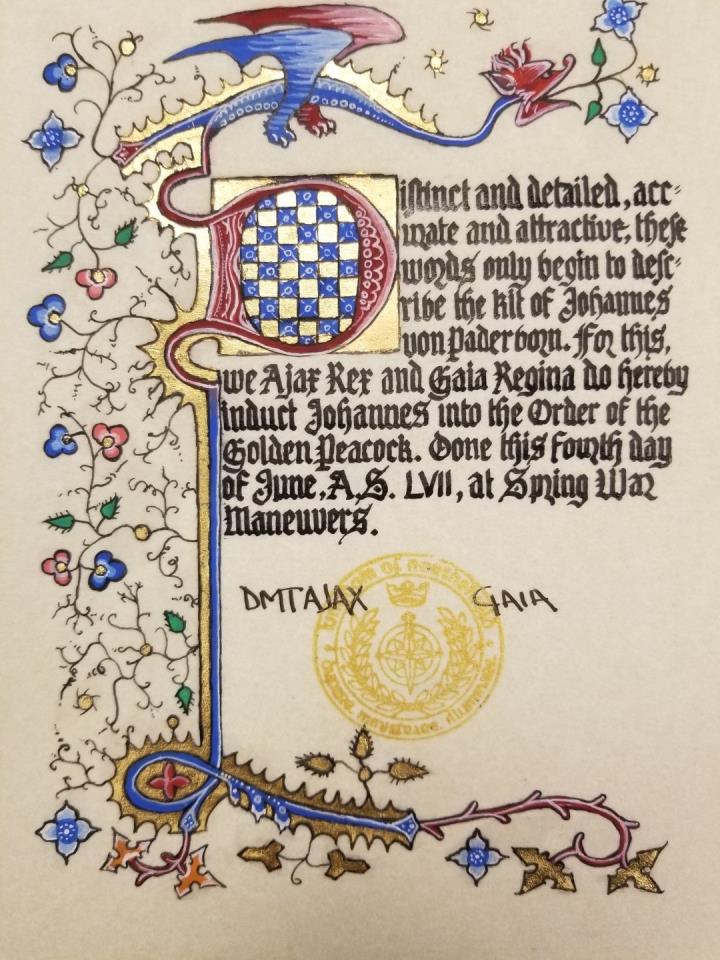 Distinct and detailed, acc-
urate and attractive, these
words only begin to desc-
ribe the kit of Johannes
von Paderborn. For this,
we Ajax Rex and Gaia Regina do hereby
induct Johannes into the Order of the
Golden Peacock. Done this fourth day
of June, A.S. LVII, at Spring War
Maneuvers.
DMTAJAX GAIA